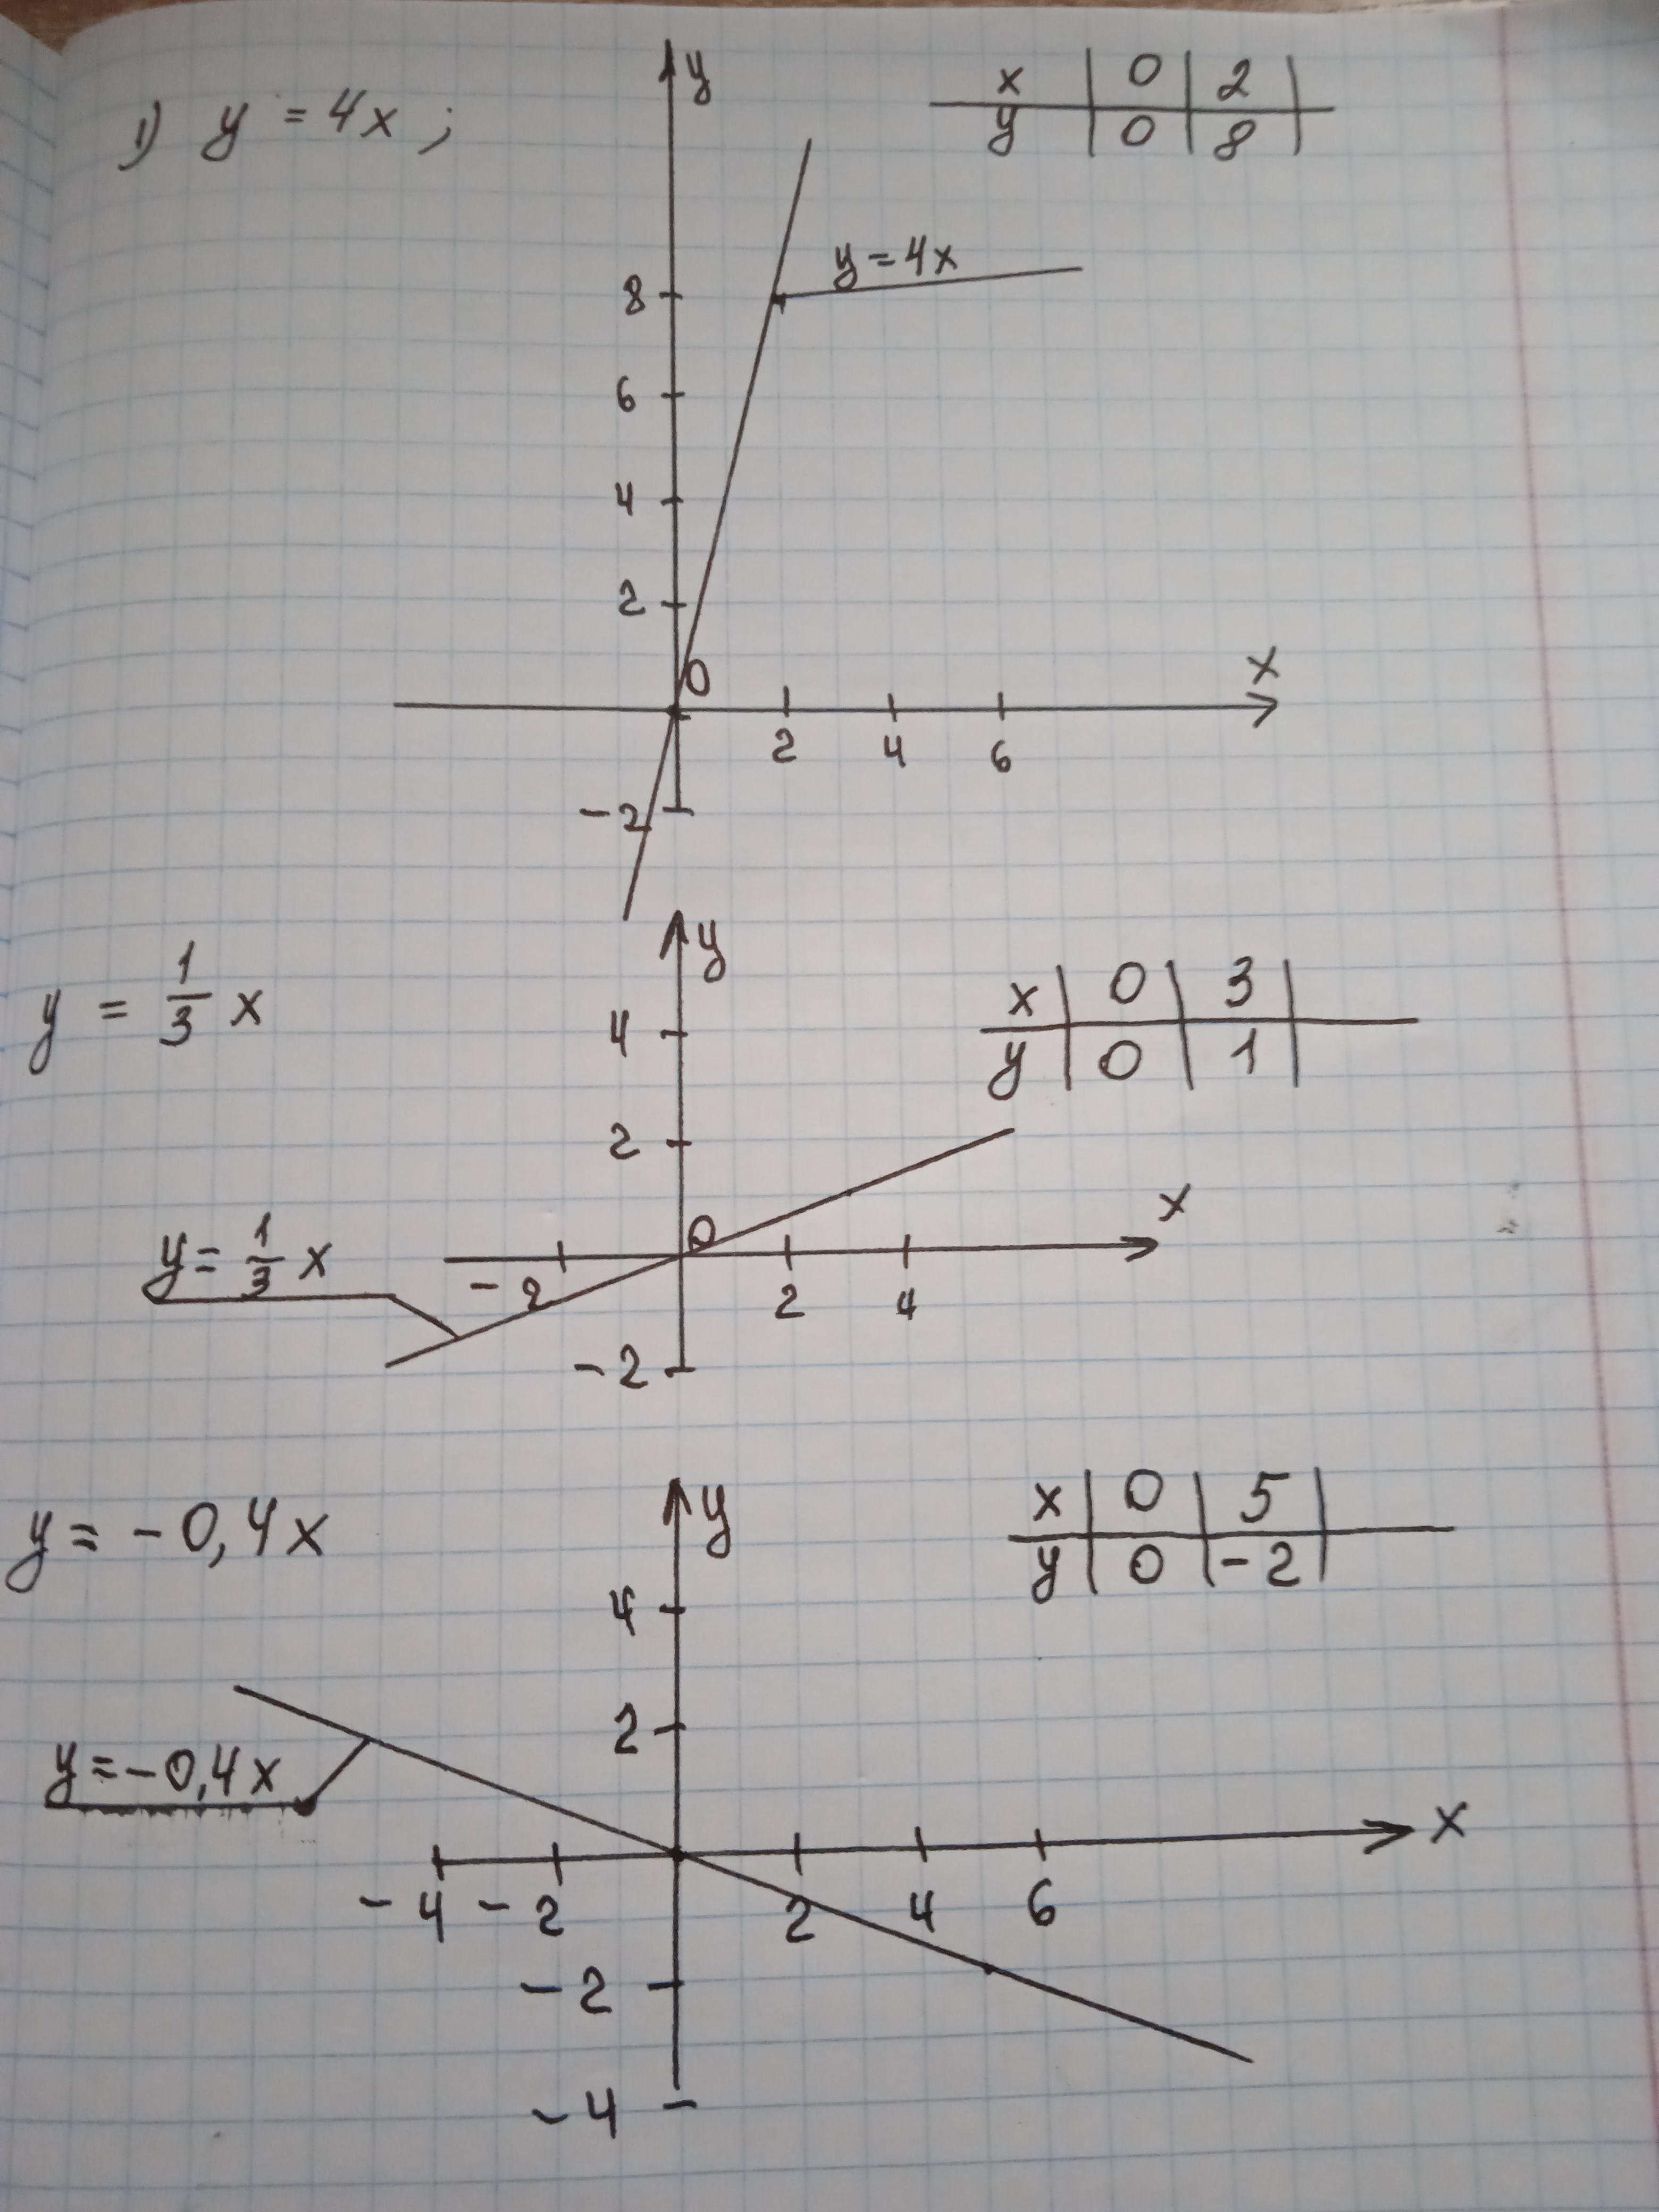 1) y = 4x ;
y
x | 0 | 2 |
y | 0 | 8 |
y = 4x
8
6
4
2
0
x
2 4 6
-2
y
y = 1/3 x
x | 0 | 3 |
y | 0 | 1 |
4
2
0
x
y = 1/3 x
-2 2 4
-2
y
y = -0,4x
x | 0 | 5 |
y | 0 | -2 |
4
2
y = -0,4x
x
-4 -2 2 4 6
-2
-4